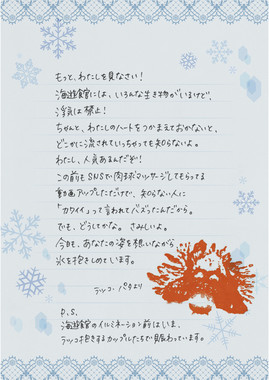 もっと、わたしを見なさい！
海遊館には、いろんな生き物がいるけど、
浮気は禁止！
ちゃんと、わたしのハートをつかまえておかないと、
どこかに流されていっちゃっても知らないよ。
わたし、人気あるんだぞ！
この前もSNSで肉球マッサージしてもらってる
動画アップしただけで、知らない人に
「カワイイ」って言われてバズったんだから。
でも、どうしてかな。さみしいよ。
今日も、あなたの姿を想いながら
氷を抱きしめています。
ラッコ・パタより
P.S.
海遊館のイルミネーション前はいま、
ラッコ抱きするカップルたちで賑わっています。